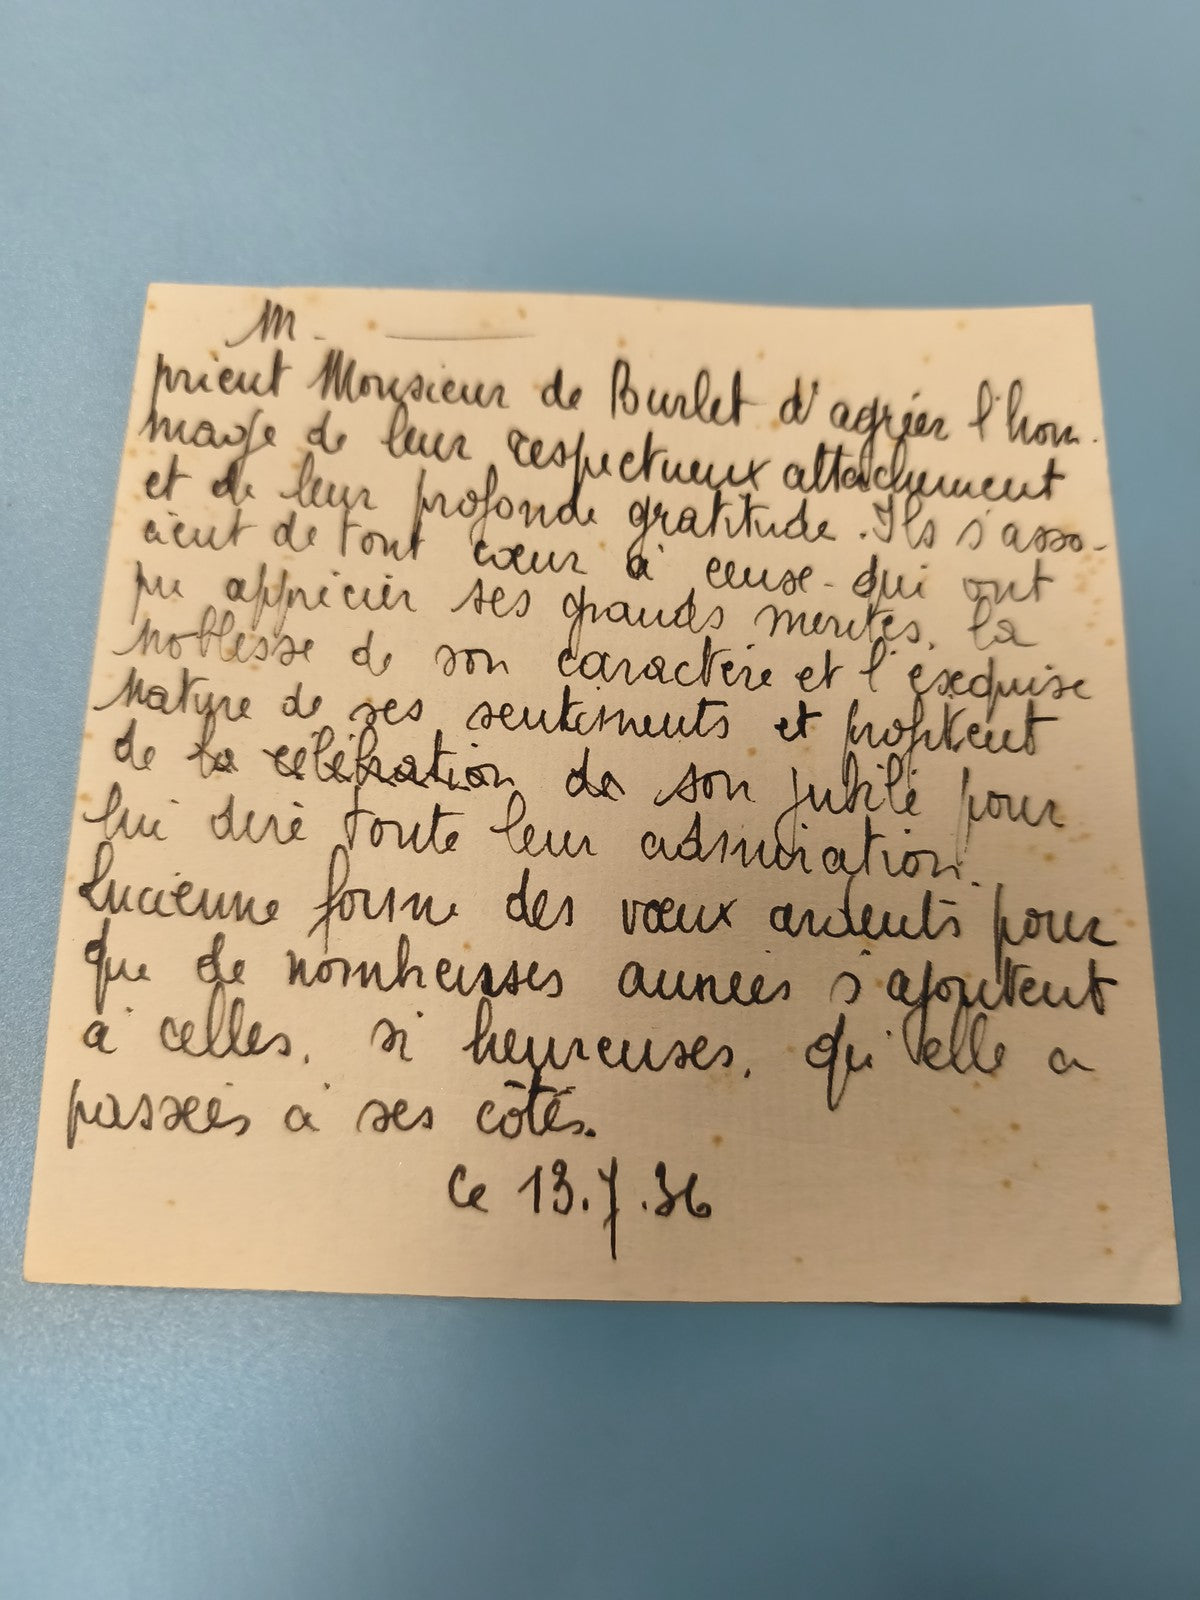 M. ______
prient Monsieur de Burlet d'agréer l'hom-
mage de leur respectueux attachement
et de leur profonde gratitude. Ils s'asso-
cient de tout cœur à ceux qui ont
pu apprécier ses grands mérites, la
noblesse de son caractère et l'exquise
nature de ses sentiments et profitent
de la célébration de son jubilé pour
lui dire toute leur admiration.
Lucienne forme des vœux ardents pour
que de nombreuses années s'ajoutent
à celles, si heureuses, qu'elle a
passées à ses côtés.
Ce 13.7.36